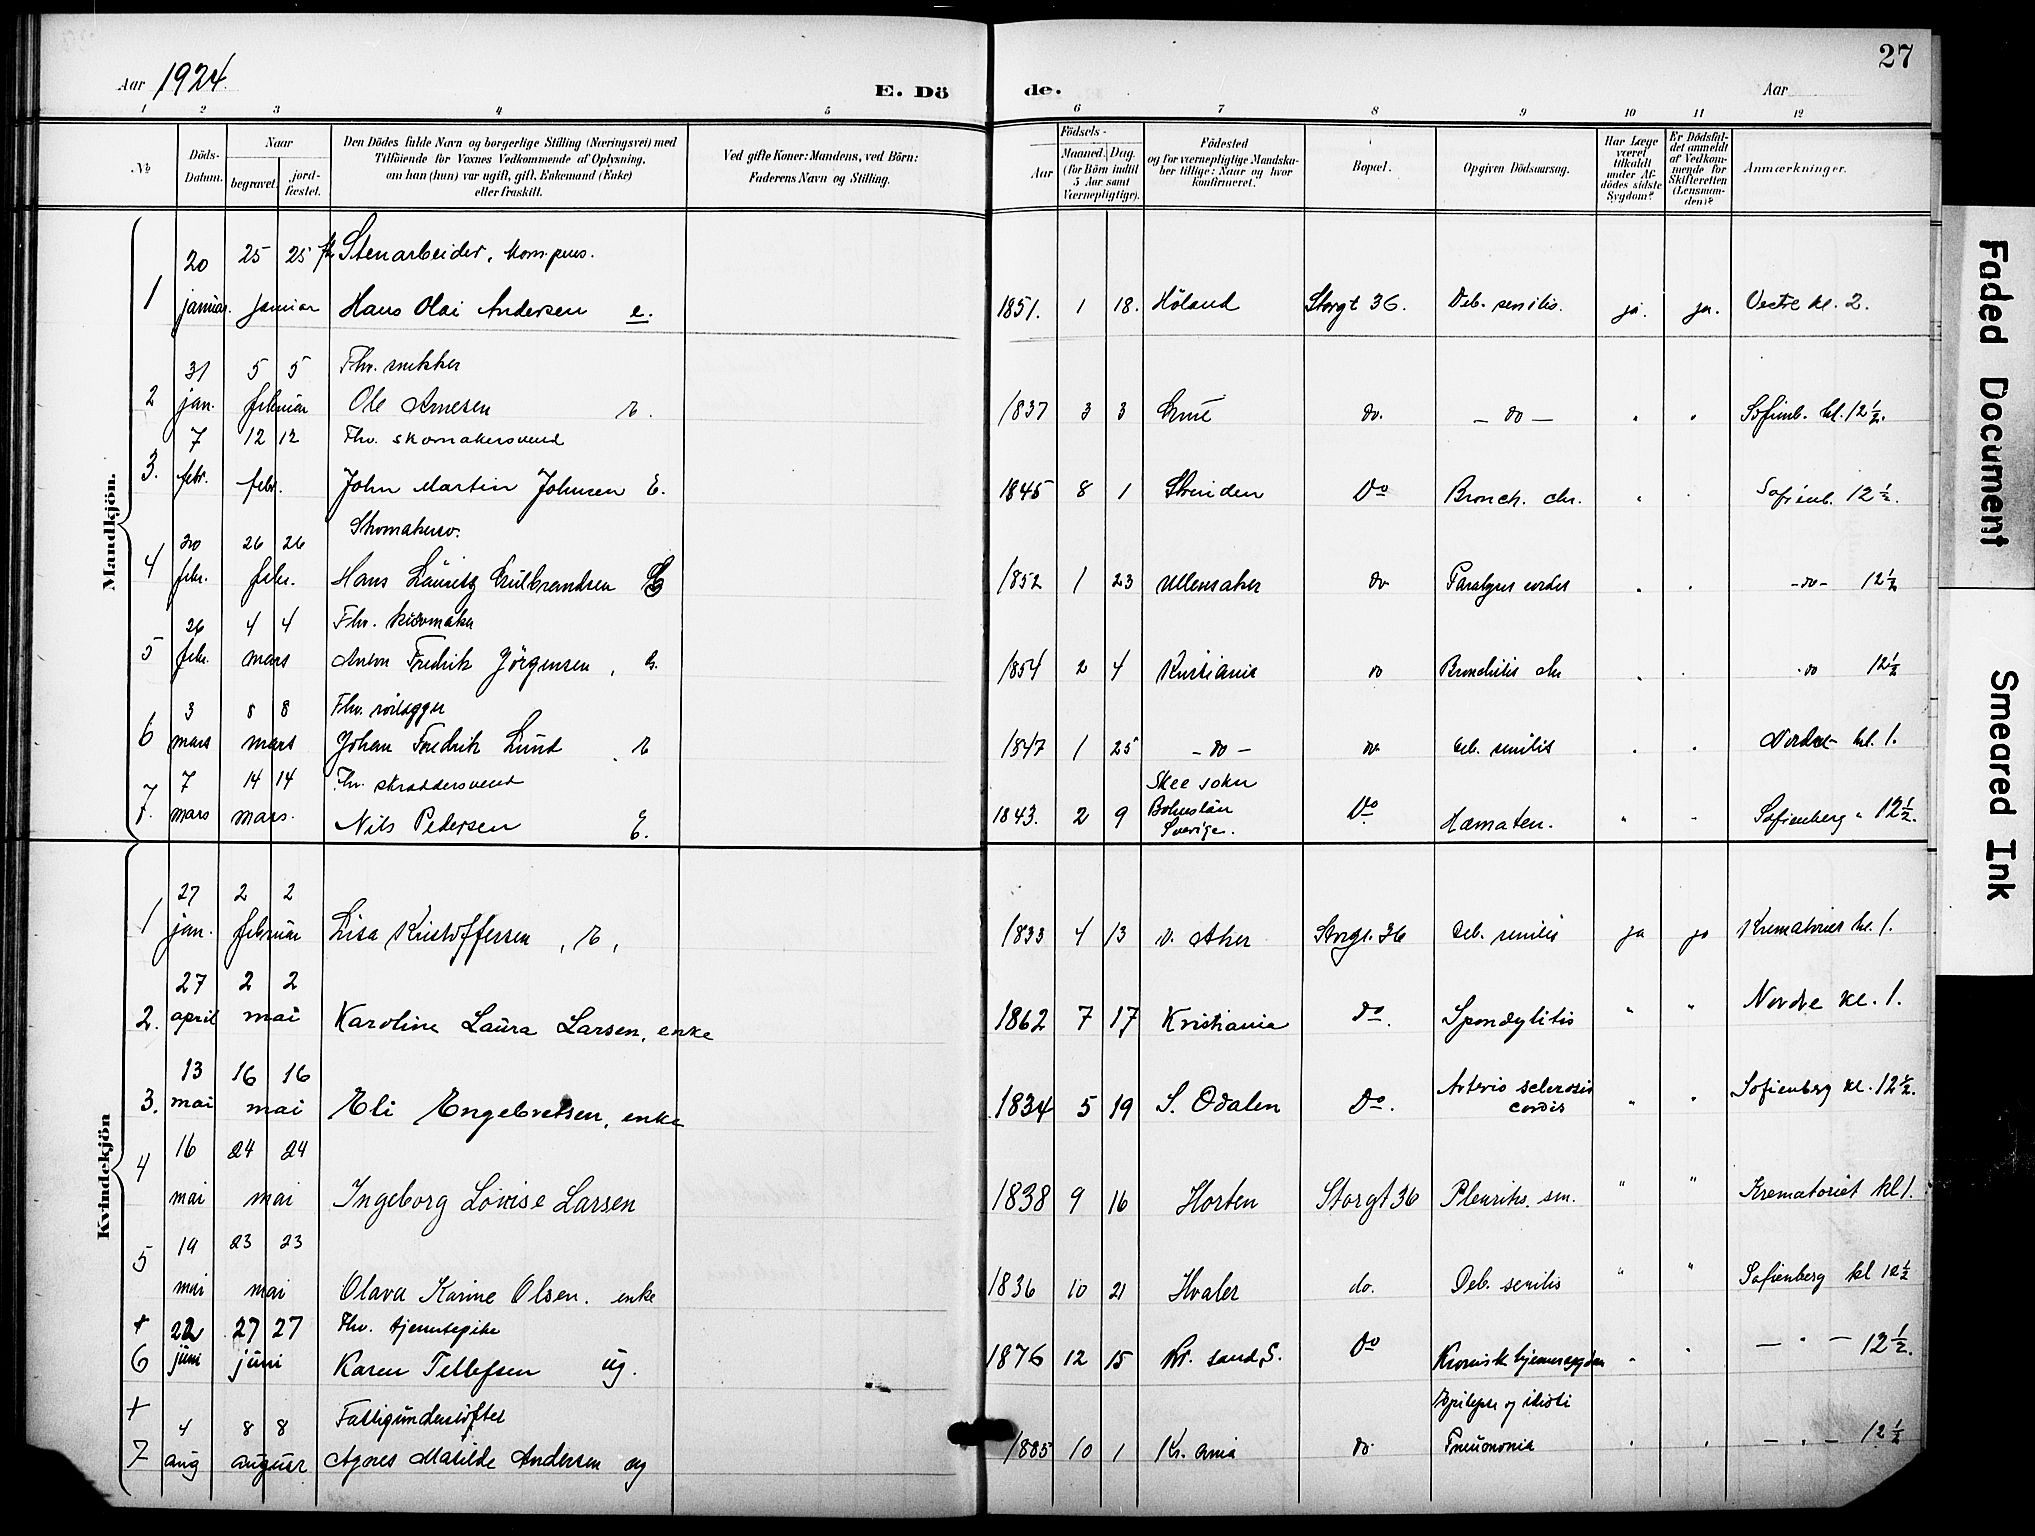 27
Aar 1924.
E. Dö de.
Aar
1 2 3 4 5 6 7 8 9 10 11 12
№
Döds-
Datum.
Naar
begravet.
jord-
fæstet.
Den Dödes fulde Navn og borgerlige Stilling (Næringsvei) med
Tilföiende for Voxnes Vedkommende af Oplysning,
om han (hun) var ugift, gift, Enkemand (Enke)
eller fraskilt.
Ved gifte Koner: Mandens, ved Börn:
Faderens Navn og Stilling.
Födsels-
Aar
Maaned. Dag.
(for Börn indtil
5 Aar samt
Værnepligtige).
Födested
og for værnepligtige Mandska-
ber tillige: Naar og hvor
konfirmeret.
Bopæl.
Opgiven Dödsaarsag.
Har Læge
været
tilkaldt
under Af-
dödes sidste
Sygdom?
Er Dödsfal-
det anmeldt
af Vedkom-
mende for
Skifteretten
(Lensman-
den)?
Anmærkninger.
Mandkjön.
20 25 25 Stenarbeider,
1 januar. januar Hans Olai Andersen e. 1851. 1 18. Höland Storgt 36. Deb. senilis. ja. ja. Vestre kl. 2.
31 5 5 Fhv. snekker
2 jan. februar Ole Arnesen E. 1837 3 3 do. — do — " " Sofienb. kl. 12½.
7 12 12 Fhv. skomakersvend
3. febr. febr. John Martin Johnsen E. 1845 8 1 Strinden Do Bronch. chr. " " Sofienb. 12½.
26 26 Skomakersv.
4 febr. febr. Hans Lauritz Gulbrandsen E 1852 1 23 Ullensaker do Paralysis cordis " " -do- 12½
26 4 4 Fhv. kurvmaker
5 febr. mars Anton Fredrik Jörgensen, E. 1854 2 4 Kristiania do Bronchitis chr " " do 12½
3 8 8 Fhv.
6 mars mars Johan Fredrik Lund E 1847 1 25 - do - do Deb. senilis " " Nordre kl. 1.
7 14 14 Fhv. skræddersvend Skee sokn
7. mars mars. Nils Pedersen E. 1843. 2 9 Bohuslän Do Hæmaten. " " Sofienberg " 12½.
Sverige.
Kvindekjön
27 2 2
1 jan. februar Lisa Kristoffersen, E, 1833 4 13 V. Aker Storgt. 36 Deb. senilis ja ja Krematoriet kl. 1.
27 2 2
2. april mai Karoline Laura Larsen, enke 1862 7 17 Kristiania Do. Spondylitis " " Nordre kl. 1.
13 16 16 Arterio sclerosis
3. mai mai Eli Engebretsen, enke 1834 5 19 S. Odalen Do. cordis " " Sofienberg kl. 12½.
16 24 24
4 mai mai Ingeborg Lovise Larsen 1838 9 16 Horten Storgt 36 Pleuritis. sin. " " Krematoriet kl 1.
19 23 23
5 mai mai Olava Karine Olsen. enke 1836 10 21 Hvaler do. Deb. senilis " " Sofienberg kl 12½
+ 22 27 27 Fhv. tjenestepike
6 juni juni Karen Tellefsen ug. 1876 12 15 Kr. sand, S. Do Kronisk hjernesygdom " " — " — 12½.
+ 4 8 8 Fattigunderstöttet Epilepsi og idioti
7 aug august Agnes Matilde Andersen ug 1885 10 1 Kr. ania do. Pneumonia " " — " — 12½
Faded Document
Smeared Ink